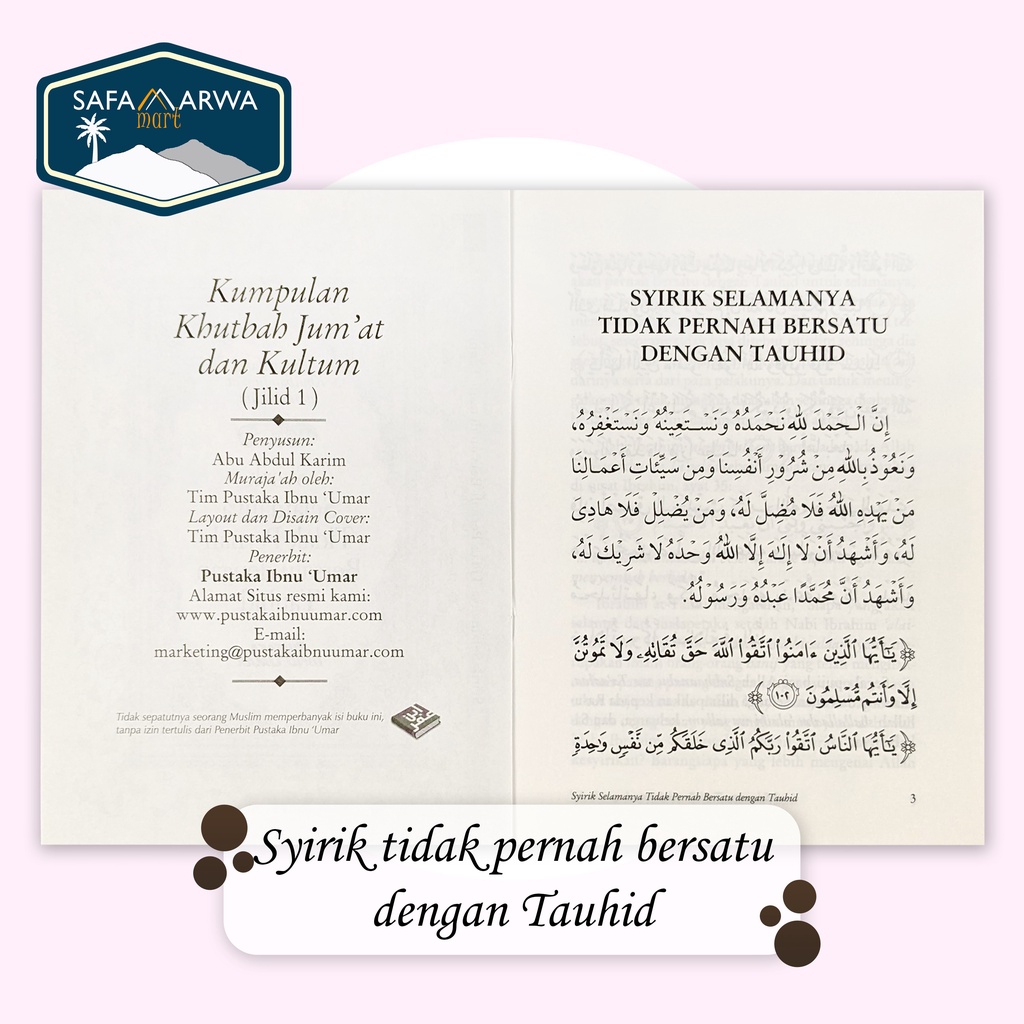 SAFAMARWA
mart
Kumpulan
Khutbah Jum'at
dan Kultum
( Jilid 1 )
Penyusun:
Abu Abdul Karim
Muraja'ah oleh:
Tim Pustaka Ibnu 'Umar
Layout dan Disain Cover:
Tim Pustaka Ibnu 'Umar
Penerbit:
Pustaka Ibnu 'Umar
Alamat Situs resmi kami:
www.pustakaibnuumar.com
E-mail:
marketing@pustakaibnuumar.com
Tidak sepatutnya seorang Muslim memperbanyak isi buku ini,
tanpa izin tertulis dari Penerbit Pustaka Ibnu 'Umar
SYIRIK SELAMANYA
TIDAK PERNAH BERSATU
DENGAN TAUHID
إِنَّ الْحَمْدَ لِلَّهِ نَحْمَدُهُ وَنَسْتَعِيْنُهُ وَنَسْتَغْفِرُهُ،
وَنَعُوْذُ بِاللهِ مِنْ شُرُوْرِ أَنْفُسِنَا وَمِنْ سَيِّئَاتِ أَعْمَالِنَا
مَنْ يَهْدِهِ اللهُ فَلَا مُضِلَّ لَهُ، وَمَنْ يُضْلِلْ فَلَا هَادِيَ
لَهُ، وَأَشْهَدُ أَنْ لَا إِلٰهَ إِلَّا اللهُ وَحْدَهُ لَا شَرِيْكَ لَهُ،
وَأَشْهَدُ أَنَّ مُحَمَّدًا عَبْدُهُ وَرَسُوْلُهُ.
﴿يَـٰٓأَيُّهَا ٱلَّذِينَ ءَامَنُوا۟ ٱتَّقُوا۟ ٱللَّهَ حَقَّ تُقَاتِهِۦ وَلَا تَمُوتُنَّ
إِلَّا وَأَنتُم مُّسْلِمُونَ ١٠٢﴾
﴿يَـٰٓأَيُّهَا ٱلنَّاسُ ٱتَّقُوا۟ رَبَّكُمُ ٱلَّذِى خَلَقَكُم مِّن نَّفْسٍ وَٰحِدَةٍ
Syirik Selamanya Tidak Pernah Bersatu dengan Tauhid 3
Syirik tidak pernah bersatu
dengan Tauhid